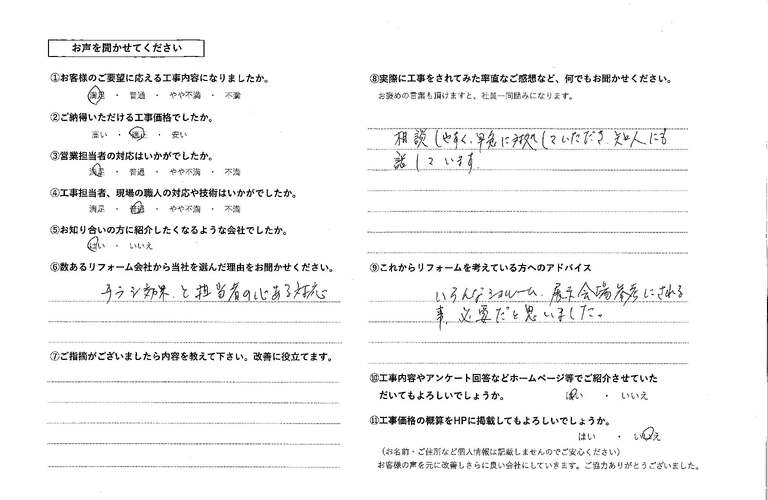 お声を聞かせてください
①お客様のご要望に応える工事内容になりましたか。
満足 ・ 普通 ・ やや不満 ・ 不満
②ご納得いただける工事価格でしたか。
高い ・ 適正 ・ 安い
③営業担当者の対応はいかがでしたか。
満足 ・ 普通 ・ やや不満 ・ 不満
④工事担当者、現場の職人の対応や技術はいかがでしたか。
満足 ・ 普通 ・ やや不満 ・ 不満
⑤お知り合いの方に紹介したくなるような会社でしたか。
はい ・ いいえ
⑥数あるリフォーム会社から当社を選んだ理由をお聞かせください。
チラシ効果、と担当者の心ある対応
⑦ご指摘がございましたら内容を教えて下さい。改善に役立てます。
⑧実際に工事をされてみた率直なご感想など、何でもお聞かせください。
お褒めの言葉も頂けますと、社員一同励みになります。
相談しやすく、早急に対処していただき、知人にも
話しています。
⑨これからリフォームを考えている方へのアドバイス
いろんなショルーム、展示会場参考にされる
事、必要だと思いました。
⑩工事内容やアンケート回答などホームページ等でご紹介させていた
だいてもよろしいでしょうか。 はい ・ いいえ
⑪工事価格の概算をHPに掲載してもよろしいでしょうか。
はい ・ いいえ
(お名前・ご住所など個人情報は記載しませんのでご安心ください)
お客様の声を元に改善しさらに良い会社にしていきます。ご協力ありがとうございました。